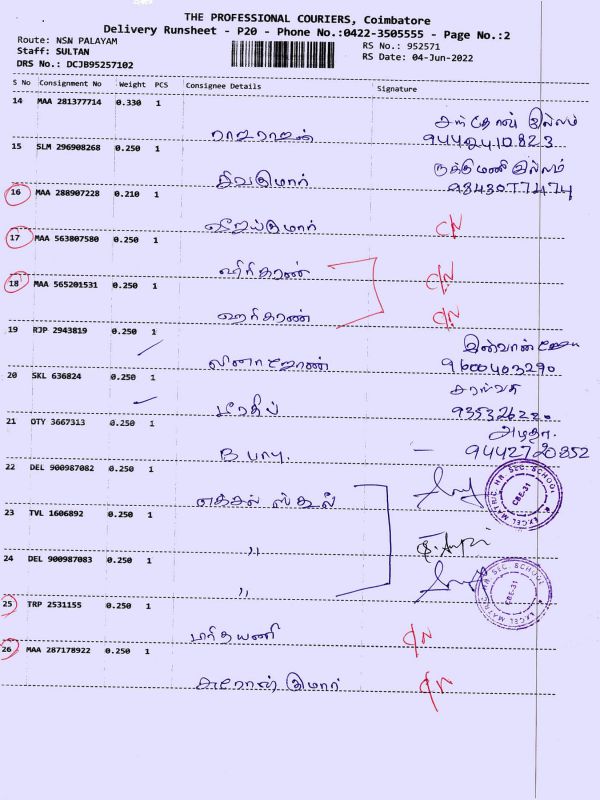 THE PROFESSIONAL COURIERS, Coimbatore
Delivery Runsheet - P20 - Phone No.:0422-3505555 - Page No.:2
Route: NSN PALAYAM
RS No.: 952571
Staff: SULTAN
RS Date: 04-Jun-2022
DRS No.: DCJB95257102
S No Consignment No Weight PCS Consignee Details Signature
14 MAA 281377714 0.330 1
ராஜராஜன் சந்தோஷ் இல்லம்
15 SLM 296908268 0.250 1
சிவகுமார் ருக்மணி இல்லம்
16 MAA 288907228 0.210 1
விஜய்குமார் C/N
17 MAA 563807580 0.250 1
ஹரிகரண் C/N
18 MAA 565201531 0.250 1
ஹரிகரண் C/N
19 RJP 2943819 0.250 1
9600403290
20 SKL 636824 0.250 1
21 OTY 3667313 0.250 1
B பாபு. — 9442720852
22 DEL 900987082 0.250 1
எக்சல் ஸ்கூல்
EXCEL MATRIC HR. SEC. SCHOOL
CBE-31
23 TVL 1606892 0.250 1
,,
24 DEL 900987083 0.250 1
,,
EXCEL MATRIC HR. SEC. SCHOOL
CBE-31
25 TRP 2531155 0.250 1
C/N
26 MAA 287178922 0.250 1
குமார் C/N